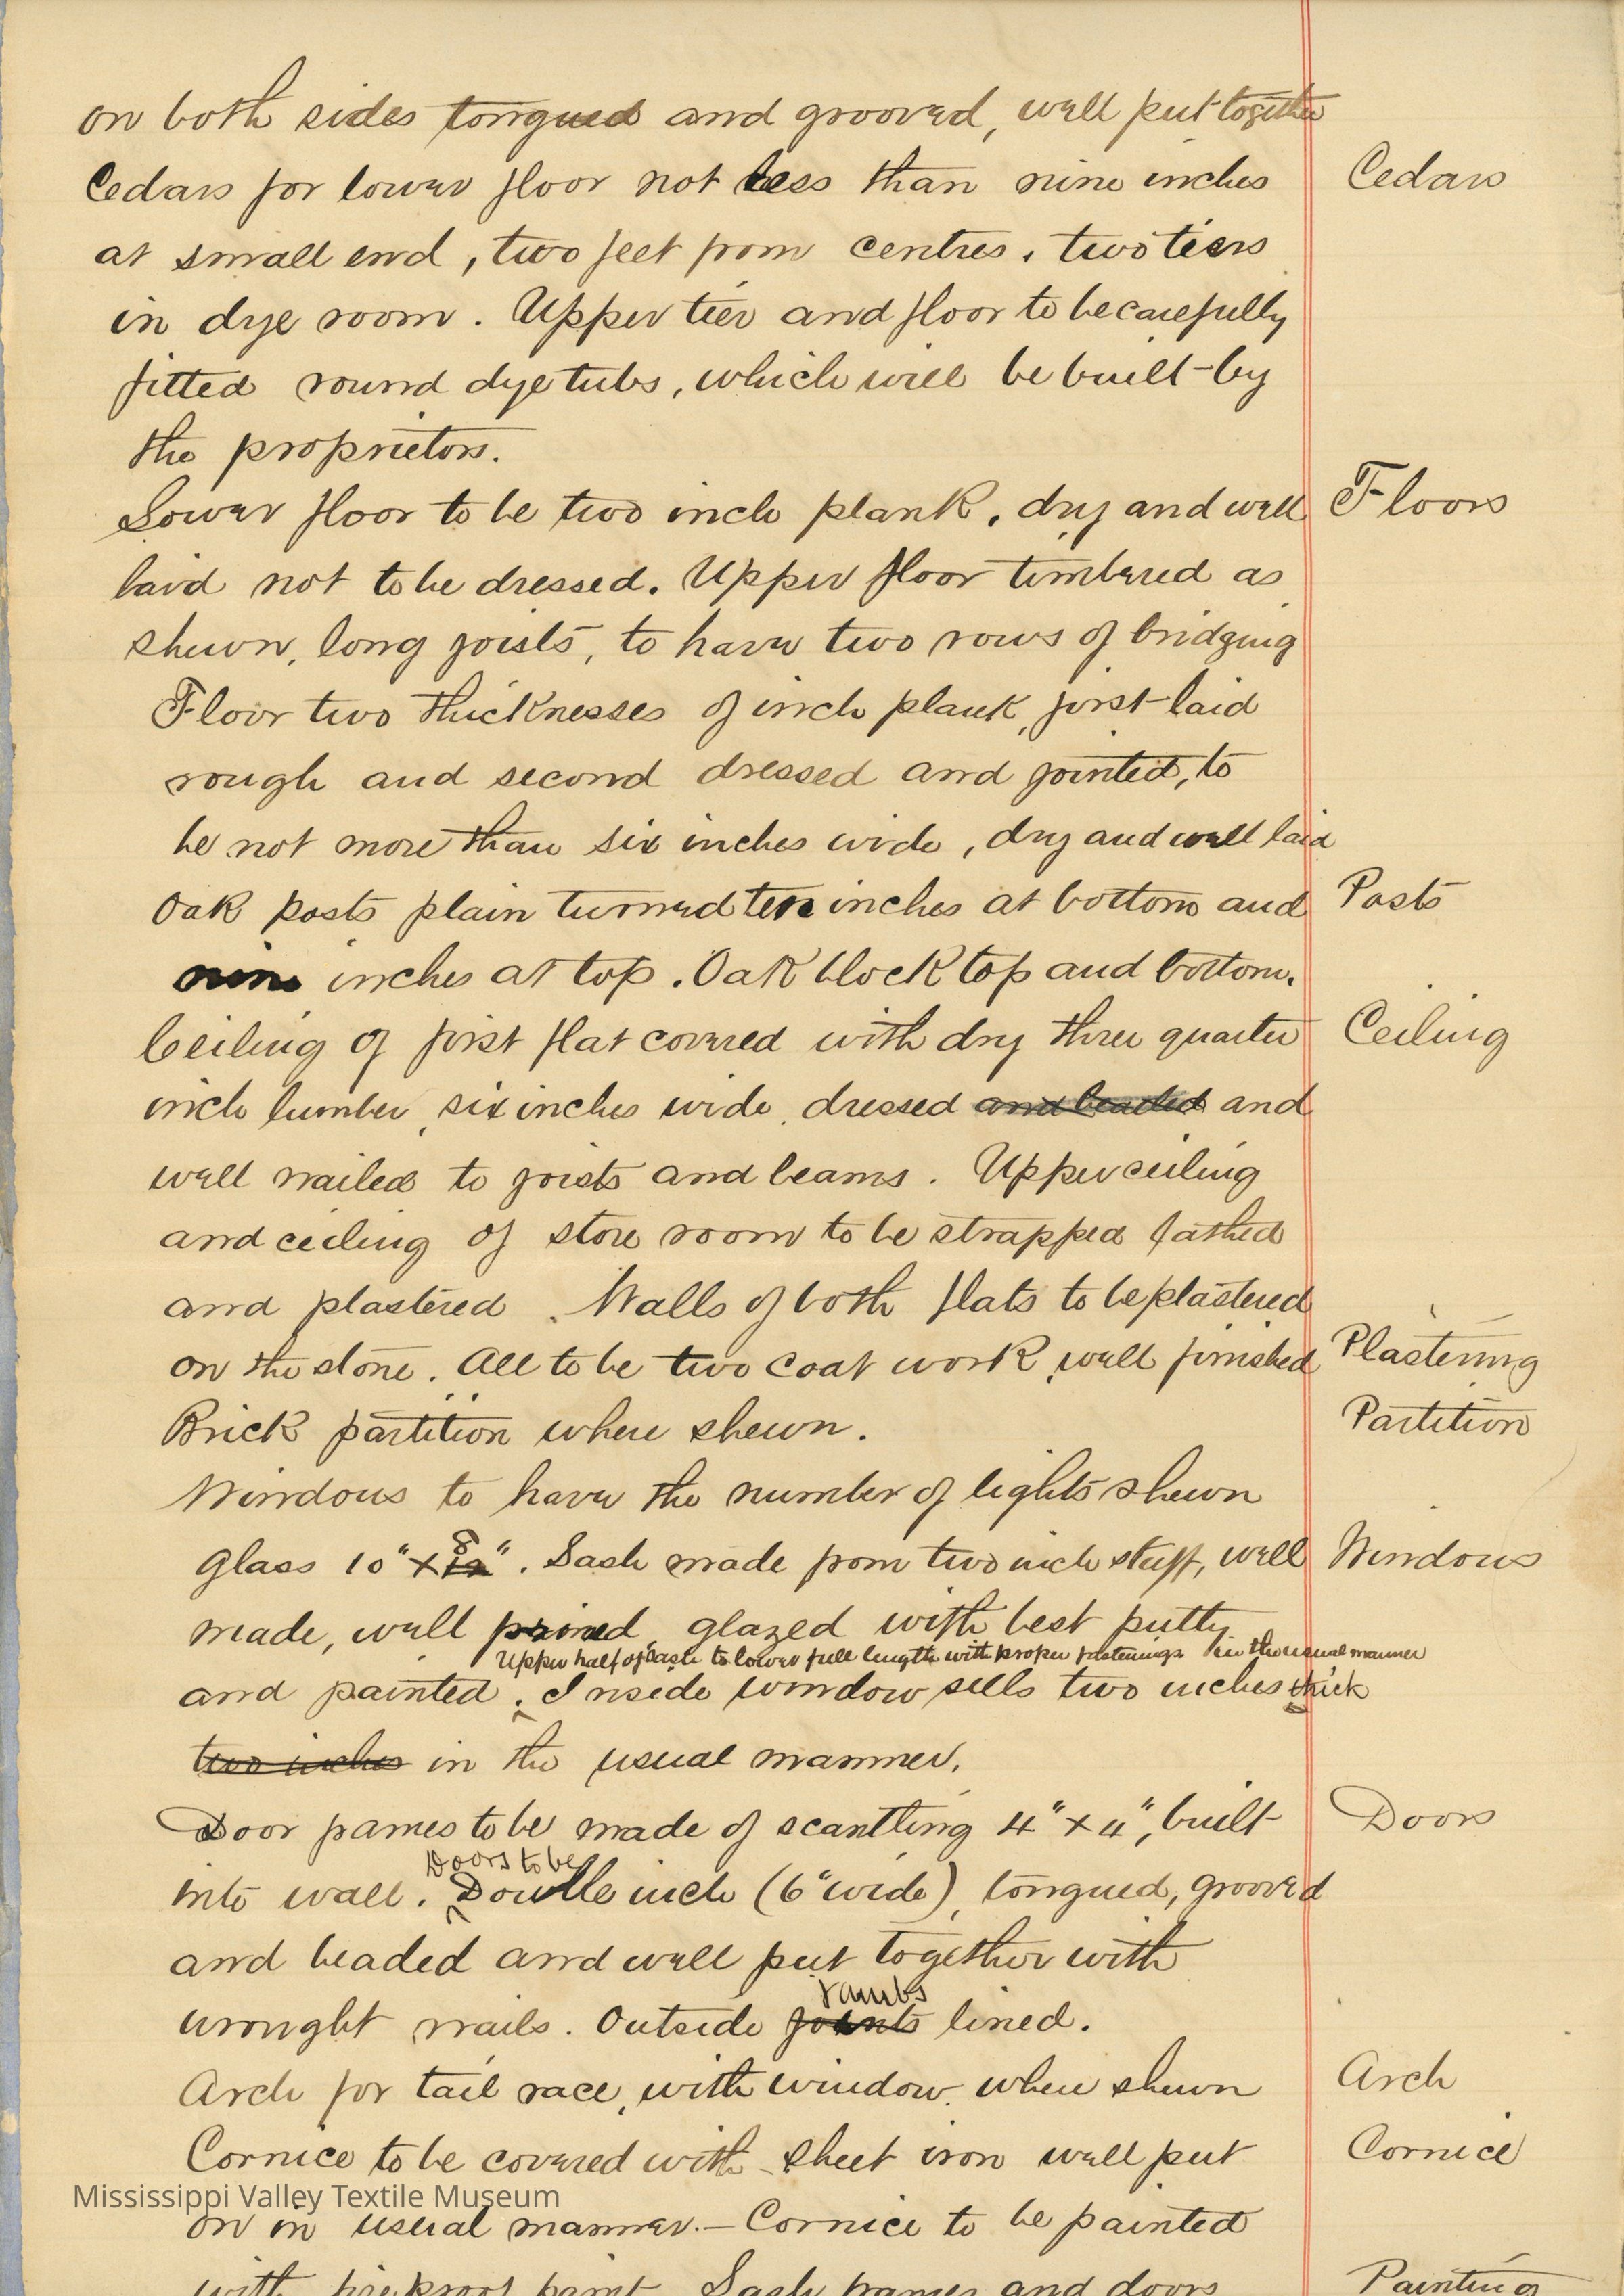 on both sides tongued and grooved, well put together
Cedars for lower floor not less than nine inches Cedars
at small end, two feet from centres, two tiers
in dye room. Upper tier and floor to be carefully
fitted round dye tubs, which will be built by
the proprietors.
Lower floor to be two inch plank, dry and well Floors
laid not to be dressed. Upper floor timbered as
shewn, long joists, to have two rows of bridging
Floor two thicknesses of inch plank, first laid
rough and second dressed and jointed, to
be not more than six inches wide, dry and well laid
Oak posts plain turned ten inches at bottom and Posts
nine inches at top. Oak block top and bottom.
Ceiling of first flat covered with dry three quarter Ceiling
inch lumber, six inches wide, dressed and beaded and
well nailed to joists and beams. Upper ceiling
and ceiling of store room to be strapped lathed
and plastered. Walls of both flats to be plastered
on the stone. All to be two coat work, well finished Plastering
Brick partition where shewn. Partition
Windows to have the number of lights shewn
8
Glass 10" x 12". Sash made from two inch stuff, well Windows
made, well primed glazed with best putty
Upper half of sash to lower full length with proper fastenings in the usual manner
and painted. Inside window sills two inches thick
two inches in the usual manner.
Door frames to be made of scantling 4" x 4", built Doors
Doors to be
into wall. Double inch (6" wide), tongued, grooved
and beaded and well put together with
Jambs
wrought nails. Outside joints lined.
Arch for tail race, with window, where shewn Arch
Cornice to be covered with sheet iron well put Cornice
Mississippi Valley Textile Museum
on in usual manner.— Cornice to be painted
with fireproof paint. Sash frames and doors Painting